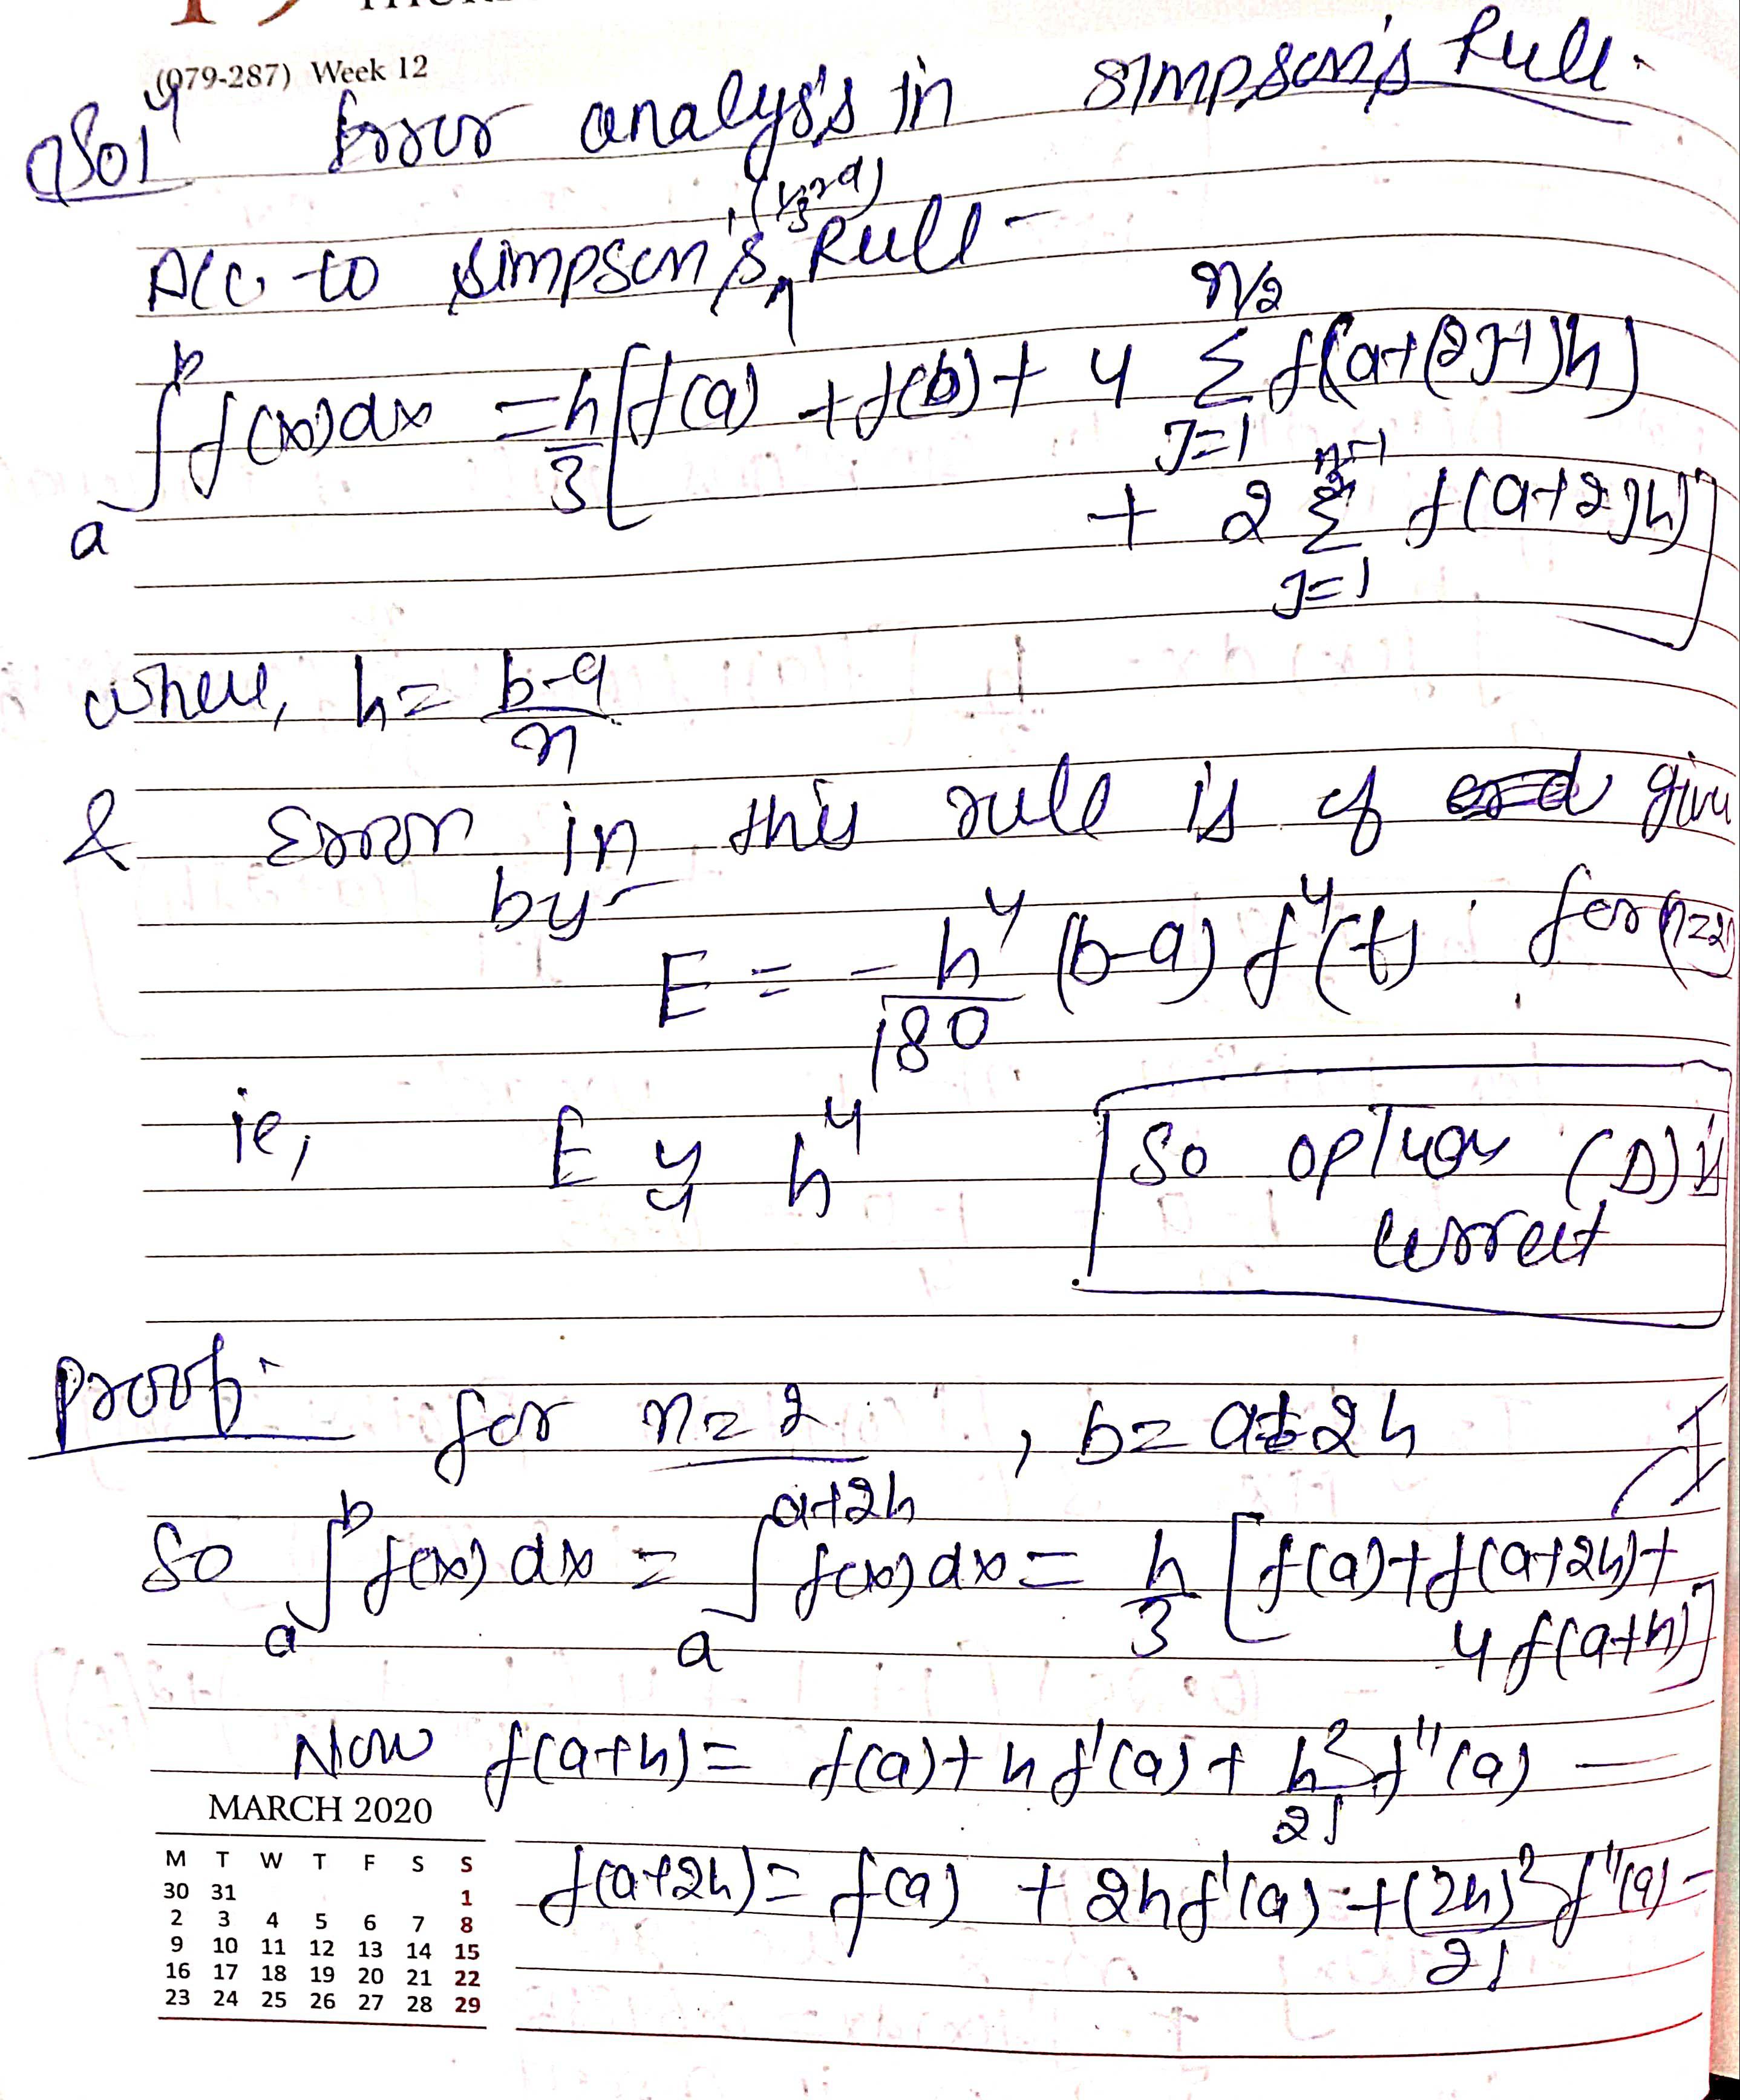 (079-287) Week 12
Soln Error analysis in Simpson's Rule.
Acc to Simpson's (1/3rd) Rule -
∫_a^b f(x)dx = h/3 [f(a) + f(b) + 4 Σ_{J=1}^{n/2} f(a+(2J-1)h)
+ 2 Σ_{J=1}^{n/2-1} f(a+2Jh)]
where, h = (b-a)/n
& Error in this rule is of give
by -
E = - h^4/180 (b-a) f^4(t) for (n=2)
ie, E h^4
So option (D) is
correct
Proof - for n = 2 , b = a+2h
So ∫_a^b f(x) dx = ∫_a^{a+2h} f(x) dx = h/3 [f(a)+f(a+2h)+
4f(a+h)]
Now f(a+h) = f(a) + h f'(a) + h^2/2! f''(a) —
f(a+2h) = f(a) + 2h f'(a) + (2h)^2/2! f''(a) -
MARCH 2020
M T W T F S S
30 31 1
2 3 4 5 6 7 8
9 10 11 12 13 14 15
16 17 18 19 20 21 22
23 24 25 26 27 28 29